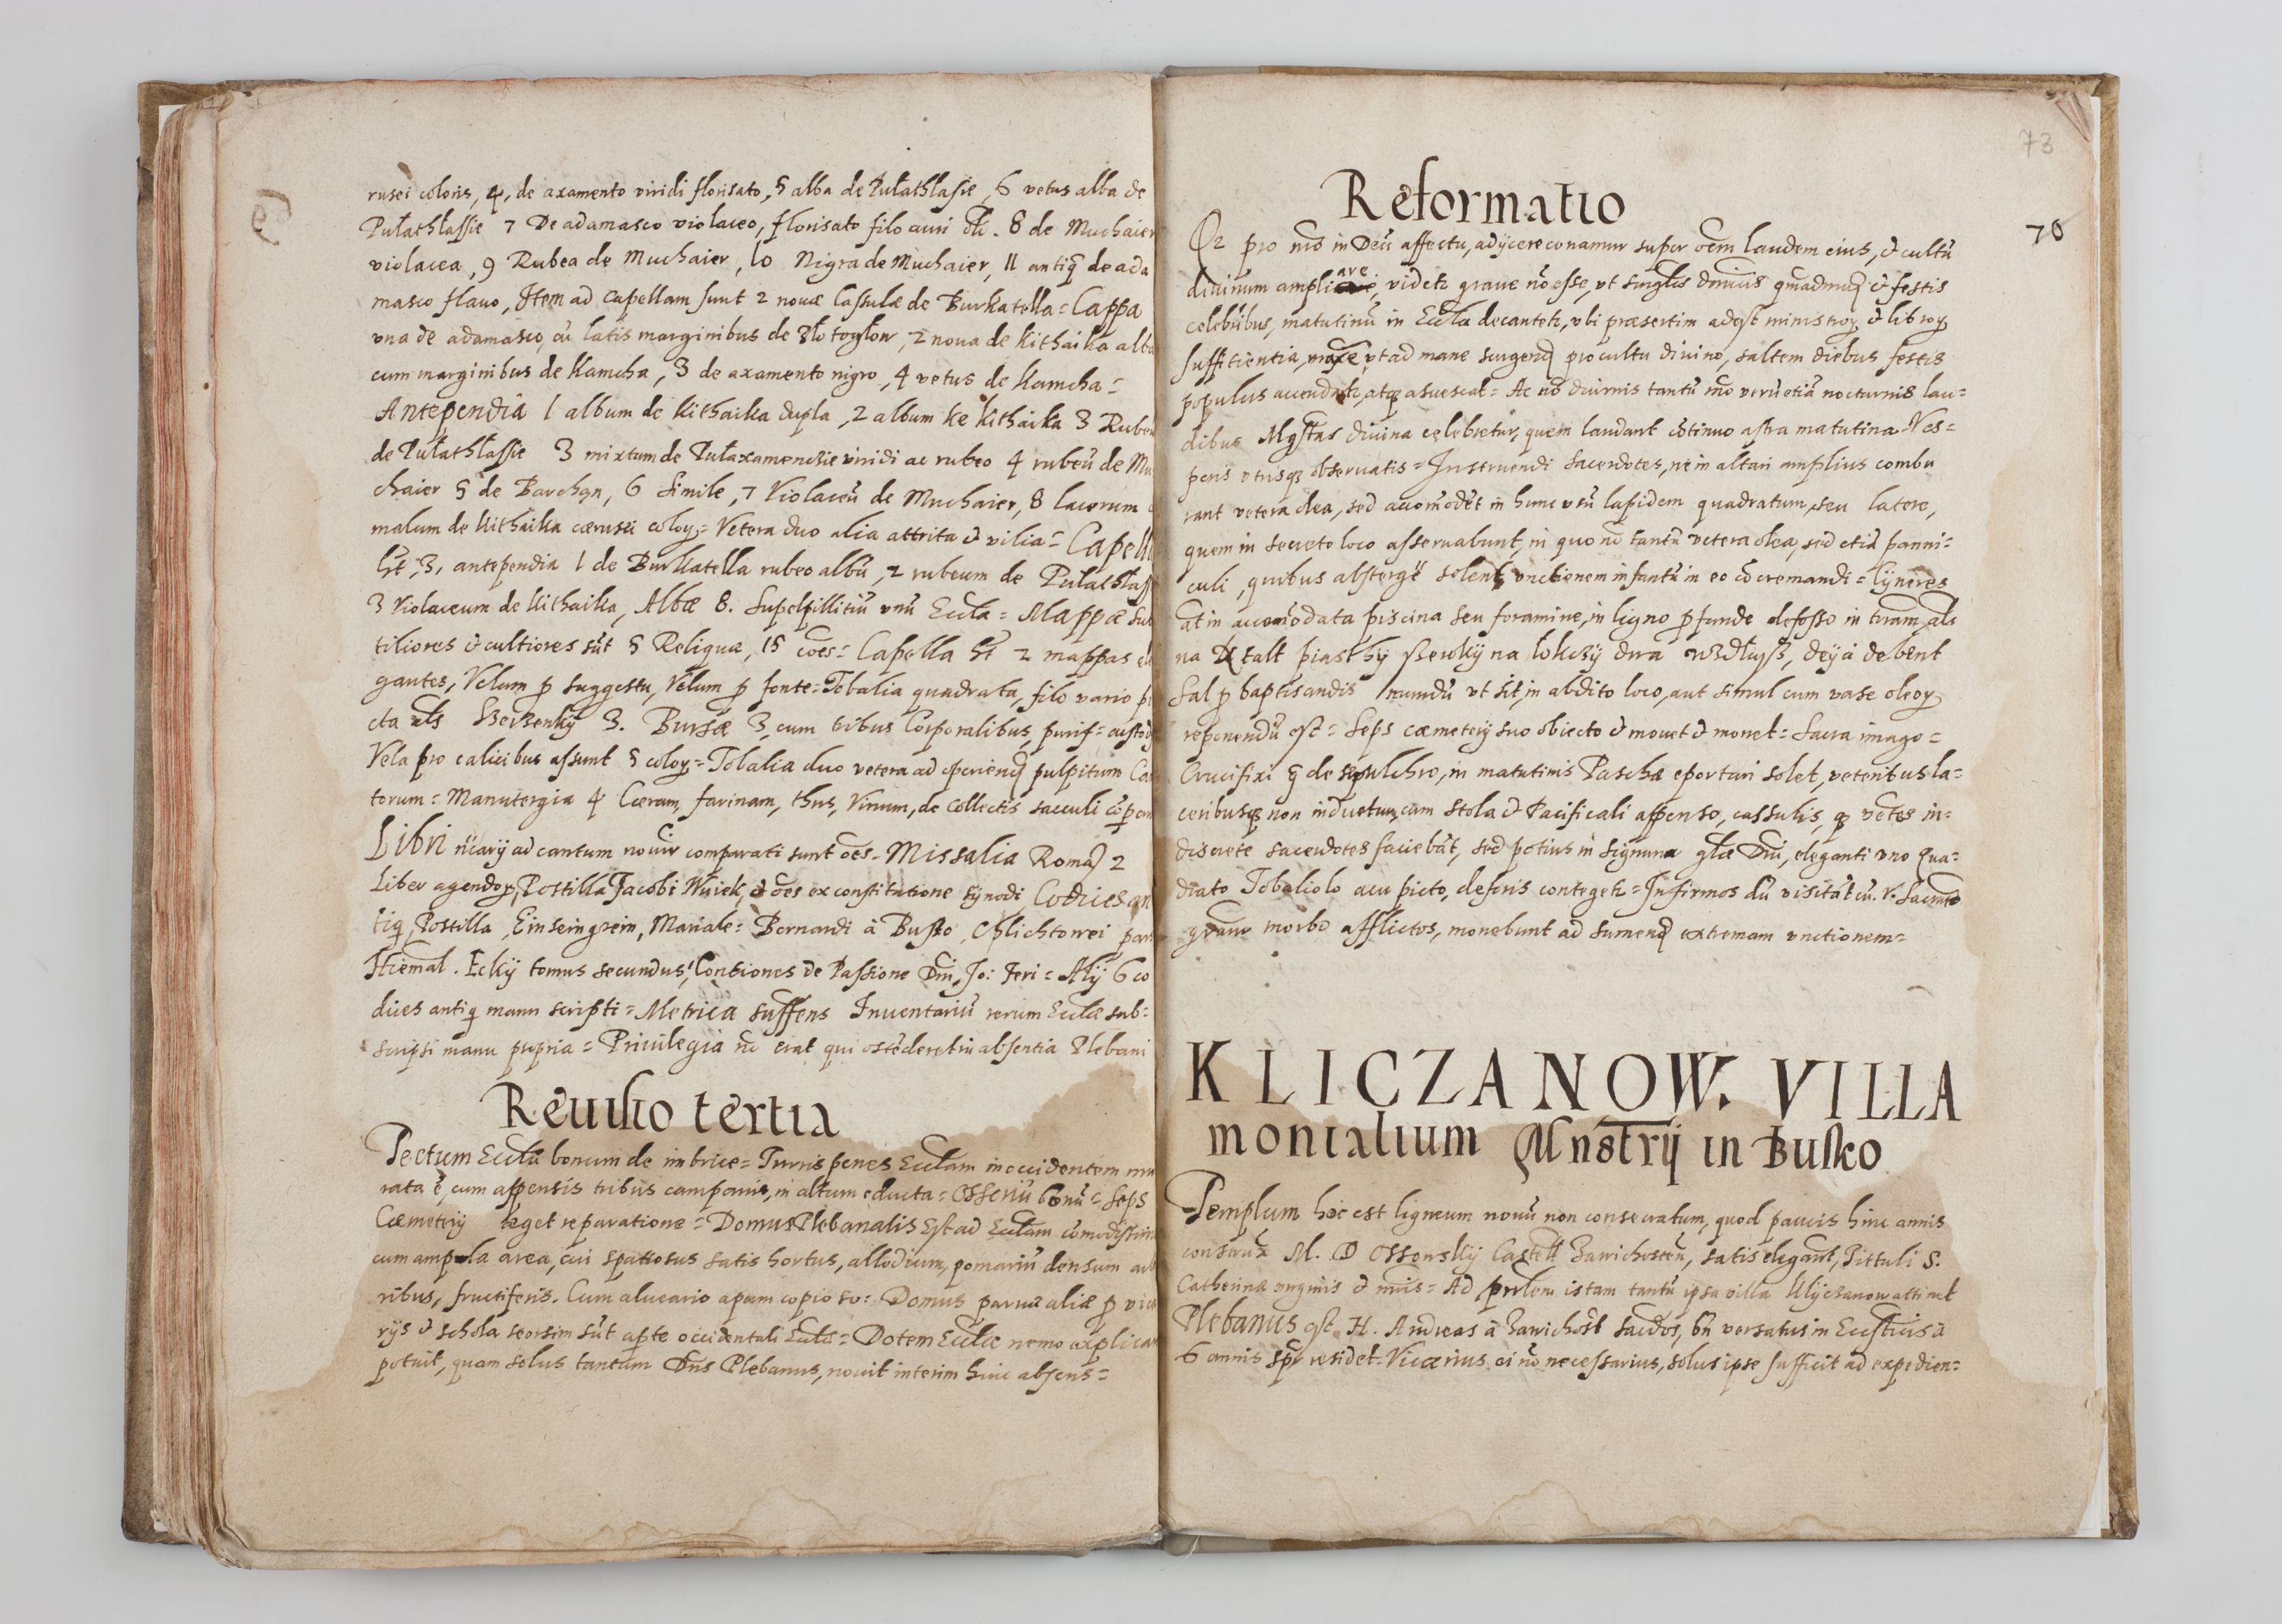 rusei coloris, 4, de axamento viridi florisato, 5 alba de Pułathlasie, 6 vetus alba de
Pułathlassie 7 De adamasco violaceo, florisato filo auri 8 de Muchaier
violacea, 9 Rubea de Muchaier, 10 Nigra de Muchaier, 11 antiq de ada
masco flavo, Item ad capellam sunt 2 novæ Cassulæ de Burkatella = Cappa
una de adamasco, cũ latis marginibus de 2 nova de Kithaika alba
cum marginibus de Kamcha, 3 de axamento nigro, 4 vetus de Kamcha =
Antependia 1 album de Kithaika dupla, 2 album ke Kithaika 3 Rubeu
de Pułathłassie 3 mixtum de viridi ac rubeo 4 rubeũ de Mu
chaier 5 de Barchan, 6 Simile, 7 Violaceũ de Muchaier, 8 lacerum
malum de Kithaika cærusei = Vetera duo alia attrita & vilia = Capell
3, antependia 1 de Burkatella rubeo albũ, 2 rubeum de Pułathłass
3 Violaceum de Kithaika, Albæ 8. unũ Eccła = Mappæ sub
tiliores & cultiores sũt 5 Reliquæ, 15 = Capella 2 mappas ele
gantes, Velum p suggestu, Velum p fonte = Tobalia quadrata, filo vario pi
cta als 3. Bursæ 3, cum tribus Corporalibus, purif =
Vela pro calicibus assunt 5 = Tobalia duo vetera ad pulpitum Can
torum = Manutergia 4 Ceram, farinam, thus, Vinum, de Collectis sacculi
Libri ad cantum noviter comparati sunt oẽs = Missalia 2
Liber Postilla Jacobi Wuiek, & oẽs ex constitutione synodi, Codices an
Postilla, Einseingrein, Mariale = Bernardi à Busto,
Hiemal. Eckij tomus secundus, Contiones de Passione Dñi, Jo: Feri = Alij 6 co
dices antiq manu scripti = Metrica suffens Inventariũ rerum Ecclæ sub =
scripsi manu propria = Privilegia nõ erat qui ostẽderet in absentia Plebani
Revisio tertia
Tectum Ecclæ bonum de imbrice = Turris penes Ecclam in occidentem mu
rata ẽ, cum appensis tribus campanis, in altum educta = Osseriũ bonũ = Seps
Cæmeterij eget reparatione = Domus Plebanalis Est ad Ecclam
cum ampla area, cui spatiosus satis hortus, allodium, pomariũ densum
ribus, fructiferis. Cum alveario apum copioso: Domus parvæ aliæ p vica
rijs & schola seorsim sũt a pte occidentali Ecclæ = Dotem Ecclæ nemo explicar
potuit, quam solus tantum Dñs Plebanus, novit interim hinc absens =
73
70
Reformatio
Qz pro in Deũ affectu, adijcere conamur super laudem eius, & cultũ
divinum ampliare, videtr grave nõ esse, ut & festis
celebribus, matutinũ in Eccla decantetr, ubi præsertim adest &
sufficientia, ut ad mane pro cultu divino, saltem diebus festis
populus atq asuescat = Ac nõ diurnis tantũ verũ etiã nocturnis lau =
dibus Mgstas divina celebretur, quem laudant cõtinuo astra matutina = Ves =
peris utrisq observatis = Instruendi sacerdotes, ne in altari amplius combu
rant vetera olea, sed in hunc usũ lapidem quadratum, seu latere,
quem in secreto loco asservabunt, in quo nõ tantũ vetera olea, sed etiã panni =
culi, quibus solent, unctionem infantũ in eo = Cyneres
in piscina seu foramine, in ligno pfunde defosso in als
na dwa debent
Sal p baptisandis mundũ ut sit, in abdito loco, aut simul cum vase
reponendũ est = Seps cæmeterij suo obiecto & movet & monet = Sacra imago =
Crucifixi de sepulchro, in matutinis Paschæ eportari solet, veteribus la =
ceribusq non induetur, cum stola & Pacificali appenso, cassulis, in =
discrete sacerdotes faciebãt, sed potius in signum Dñi, eleganti uno Qua =
drato Tobaliolo acu picto, deforis contegetr = Infirmos dũ visitãt cũ. V. Sacrmto
gravi morbo afflictos, monebunt ad extremam unctionem =
KLICZANOW. VILLA
monialium Mnstrij in Busko
Templum hoc est ligneum novũ non consecratum, quod paucis hinc annis
construx M. D Ossowsky Castell Zawichosteñ, satis elegant, Tittuli S.
Catherinæ virginis & mris = Ad istam tantũ ipsa villa Klyczanow attinet
Plebanus est H. Andreas à Zawichost sacdos, bñ versatus in Ecclsticis à
6 annis residet = Vicarius ei nõ necessarius, solus ipse sufficit ad expedien =